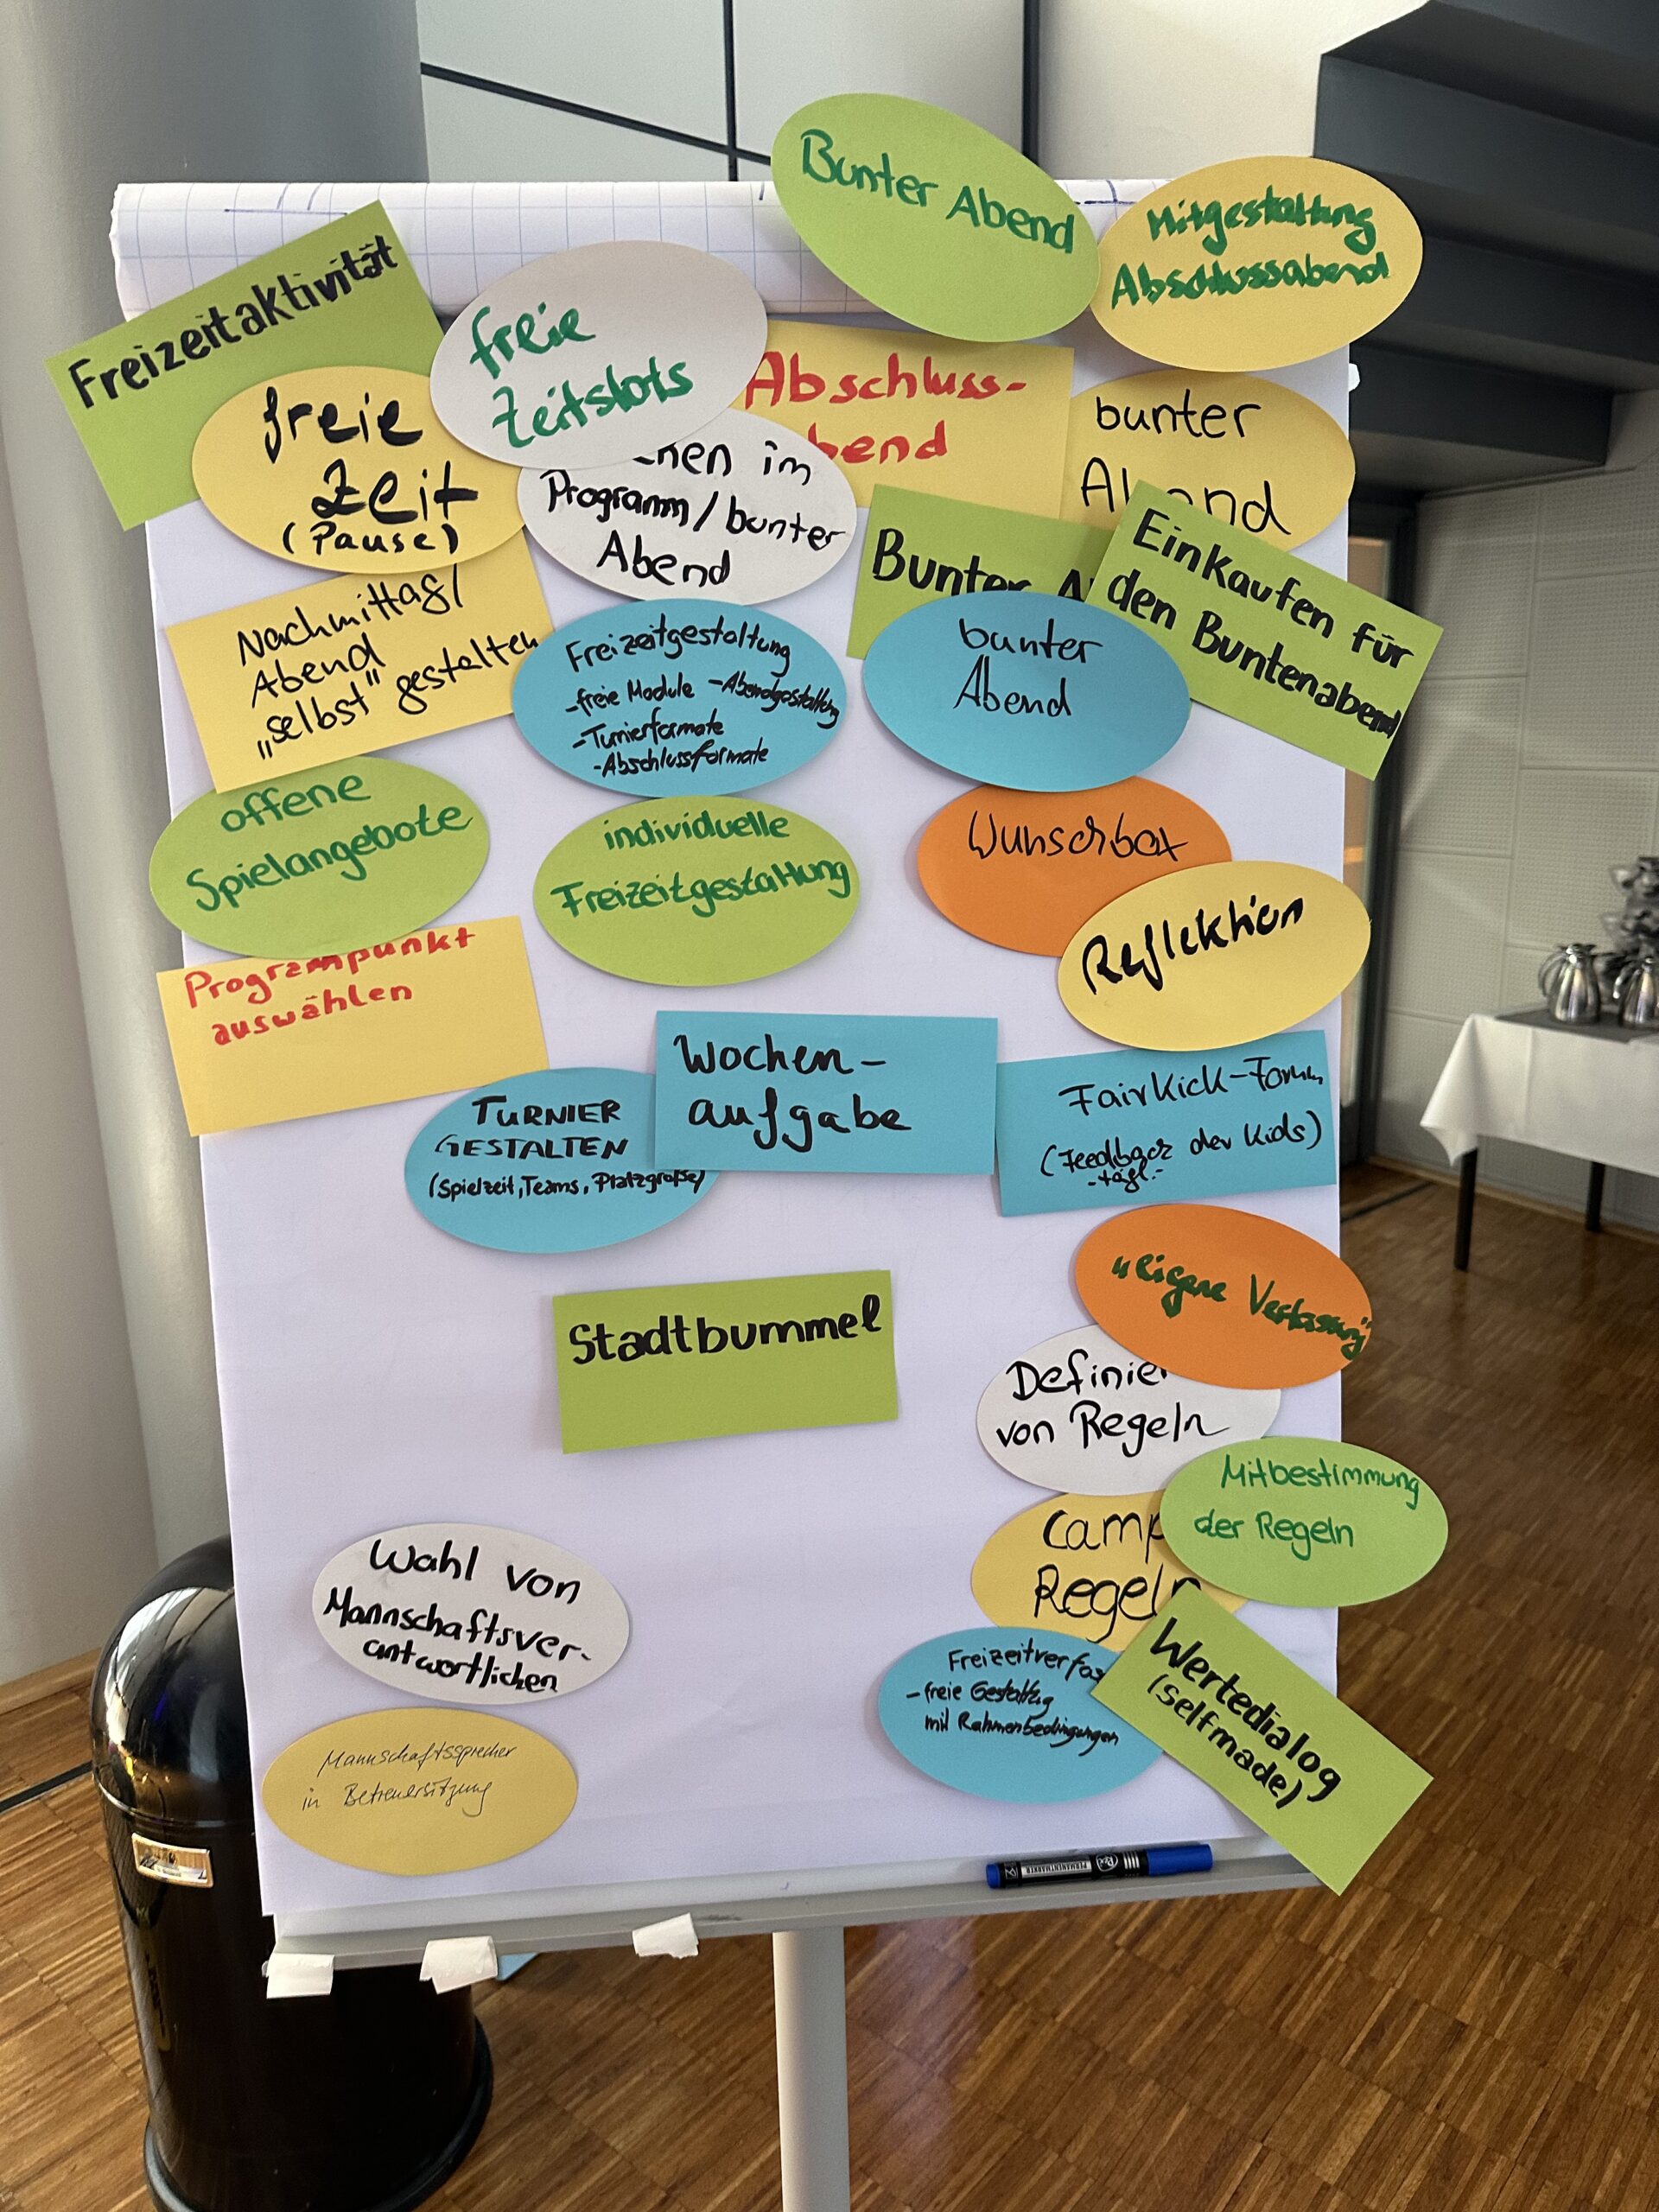 Bunter Abend
Mitgestaltung
Abschlussabend
Freizeitaktivität
freie
Zeitslots
Abschluss-
bend
bunter
Abend
freie
Zeit
(Pause)
im
Programm/bunter
Abend
Bunter A
Einkaufen für
den Buntenabend
Nachmittag/
Abend
„selbst" gestalten
Freizeitgestaltung
-freie Module -Abendgestaltung
-Turnierformate
-Abschlussformate
bunter
Abend
offene
Spielangebote
individuelle
Freizeitgestaltung
Wunschbox
Reflektion
Programmpunkt
auswählen
TURNIER
GESTALTEN
(Spielzeit, Teams, Platzgröße)
Wochen-
aufgabe
FairKick-Forum
(Feedback der Kids)
-tägl.-
„eigene Verfassung"
Stadtbummel
Definier
von Regeln
Mitbestimmung
der Regeln
Camp
Regeln
Wahl von
Mannschaftsver-
antwortlichen
Freizeitverfas
-freie Gestaltg
mit Rahmenbedingungen
Wertedialog
(selfmade)
Mannschaftssprecher
in Betreuersitzung
PERMANENTMARKER